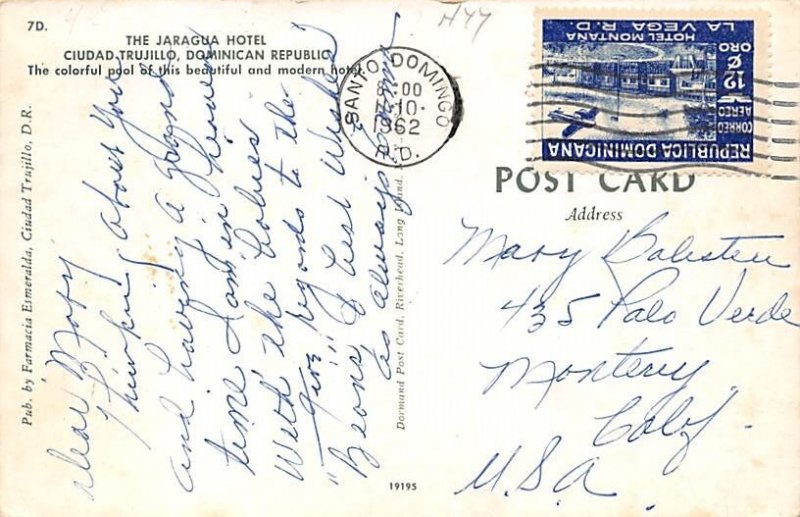 7D.
THE JARAGUA HOTEL
CIUDAD TRUJILLO, DOMINICAN REPUBLIC
The colorful pool of this beautiful and modern hotel.
Pub. by Farmacia Esmeralda, Ciudad Trujillo, D.R.
Dear Mary
Thinking about You
and having a grand
time I am in Heaven
With the babies
Give regards to the
"Beans" & best Wishes
as always
Dormand Post Card, Riverhead, Long Island,
19195
SANTO DOMINGO
10
1962
R.D.
HOTEL MONTAÑA
LA VEGA R.D.
12 ¢
ORO
CORREO
AEREO
REPUBLICA DOMINICANA
POST CARD
Address
Mary
435 Palo Verde
Monterey
Calif.
U.S.A